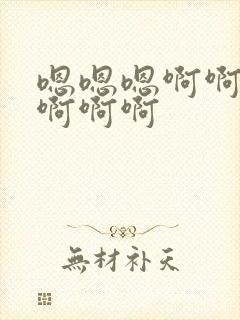 嗯嗯嗯啊啊
啊啊啊
無材补天